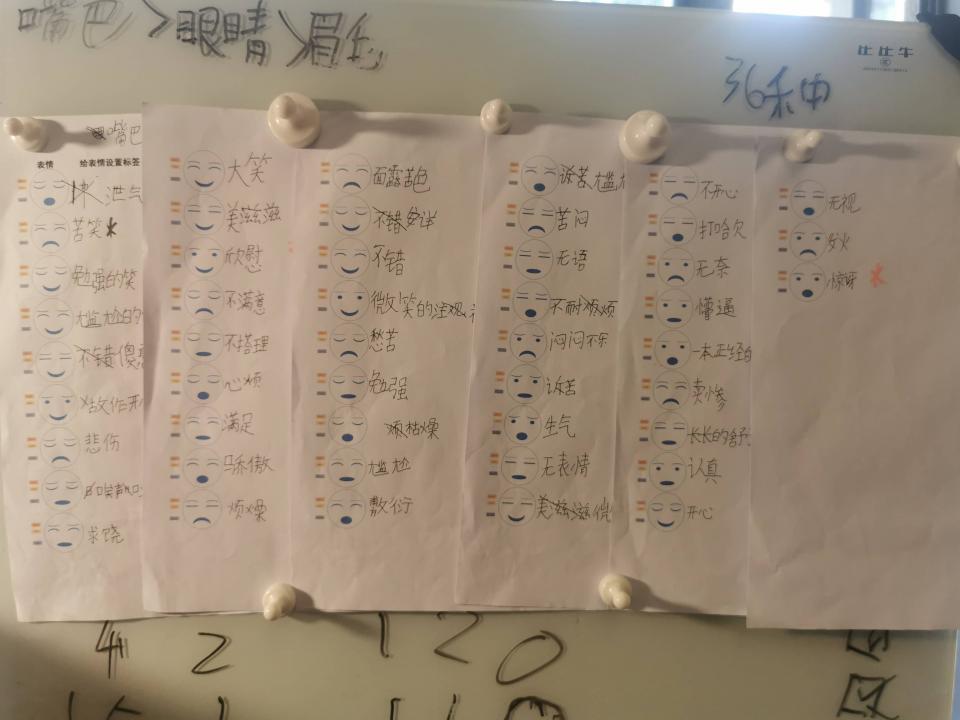 嘴巴>眼睛>眉毛
36种
比比牛
嘴巴
表情 给表情设置标签
泄气
苦笑
勉强的笑
尴尬的
不错傻
故作
悲伤
求饶
大笑
美滋滋
欣慰
不满意
不搭理
心烦
满足
骄傲
烦燥
面露苦色
不错
不错
微笑的注视
愁苦
勉强
烦枯燥
尴尬
敷衍
诉苦尴尬
苦闷
无语
不耐烦
闷闷不乐
诉苦
生气
无表情
美滋滋
不开心
打哈欠
无奈
懵逼
一本正经的
卖惨
长长的舒
认真
开心
无视
发火
惊讶
4 2 1 2 0